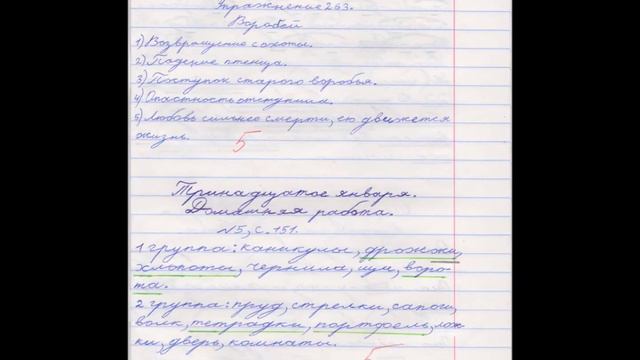 Упражнение 263.
Воробей
1) Возвращение с охоты.
2) Падение птенца.
3) Поступок старого воробья.
4) Опасность отступила.
5) Любовь сильнее смерти, ею движется
жизнь.
5
Тринадцатое января.
Домашняя работа.
№5, с. 151.
1 группа: каникулы, дрожжи,
хлопоты, чернила, щи, воро-
та.
2 группа: пруд, стрелки, сапог,
волк, тетрадки, портфель, лож-
ки, дверь, комнаты.
5